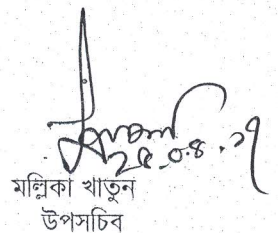 ২৫.০৪.১৭
মল্লিকা খাতুন
উপসচিব